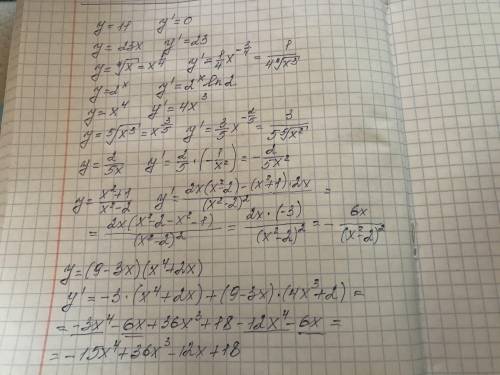 y=11 y'=0
y=23x y'=23
y=⁴√x=x⁴ y'=1/4 x^(-3/4)=1/(4 ⁴√x³)
y=2ˣ y'=2ˣ ln2
y=x⁴ y'=4x³
y=⁵√x³=x^(3/5) y'=3/5 x^(-2/5)=3/(5 ⁵√x²)
y=2/(5x) y'=2/5·(-1/x²)=-2/(5x²)
y=(x²+1)/(x²-2) y'=(2x(x²-2)-(x²+1)·2x)/(x²-2)²=
=(2x(x²-2-x²-1))/(x²-2)²=(2x·(-3))/(x²-2)²=-6x/(x²-2)²
y=(9-3x)(x⁴+2x)
y'=-3·(x⁴+2x)+(9-3x)·(4x³+2)=
=-3x⁴-6x+36x³+18-12x⁴-6x=
=-15x⁴+36x³-12x+18